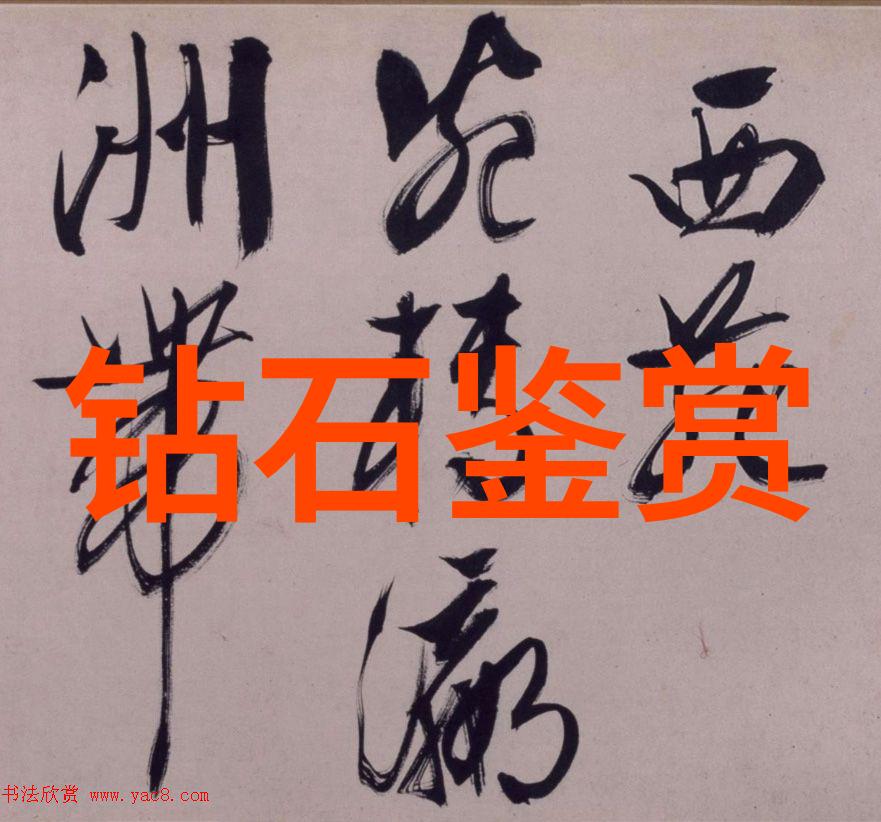 西苑
瀛
洲帶
钻石鉴赏
书法欣赏 www.yac8.com